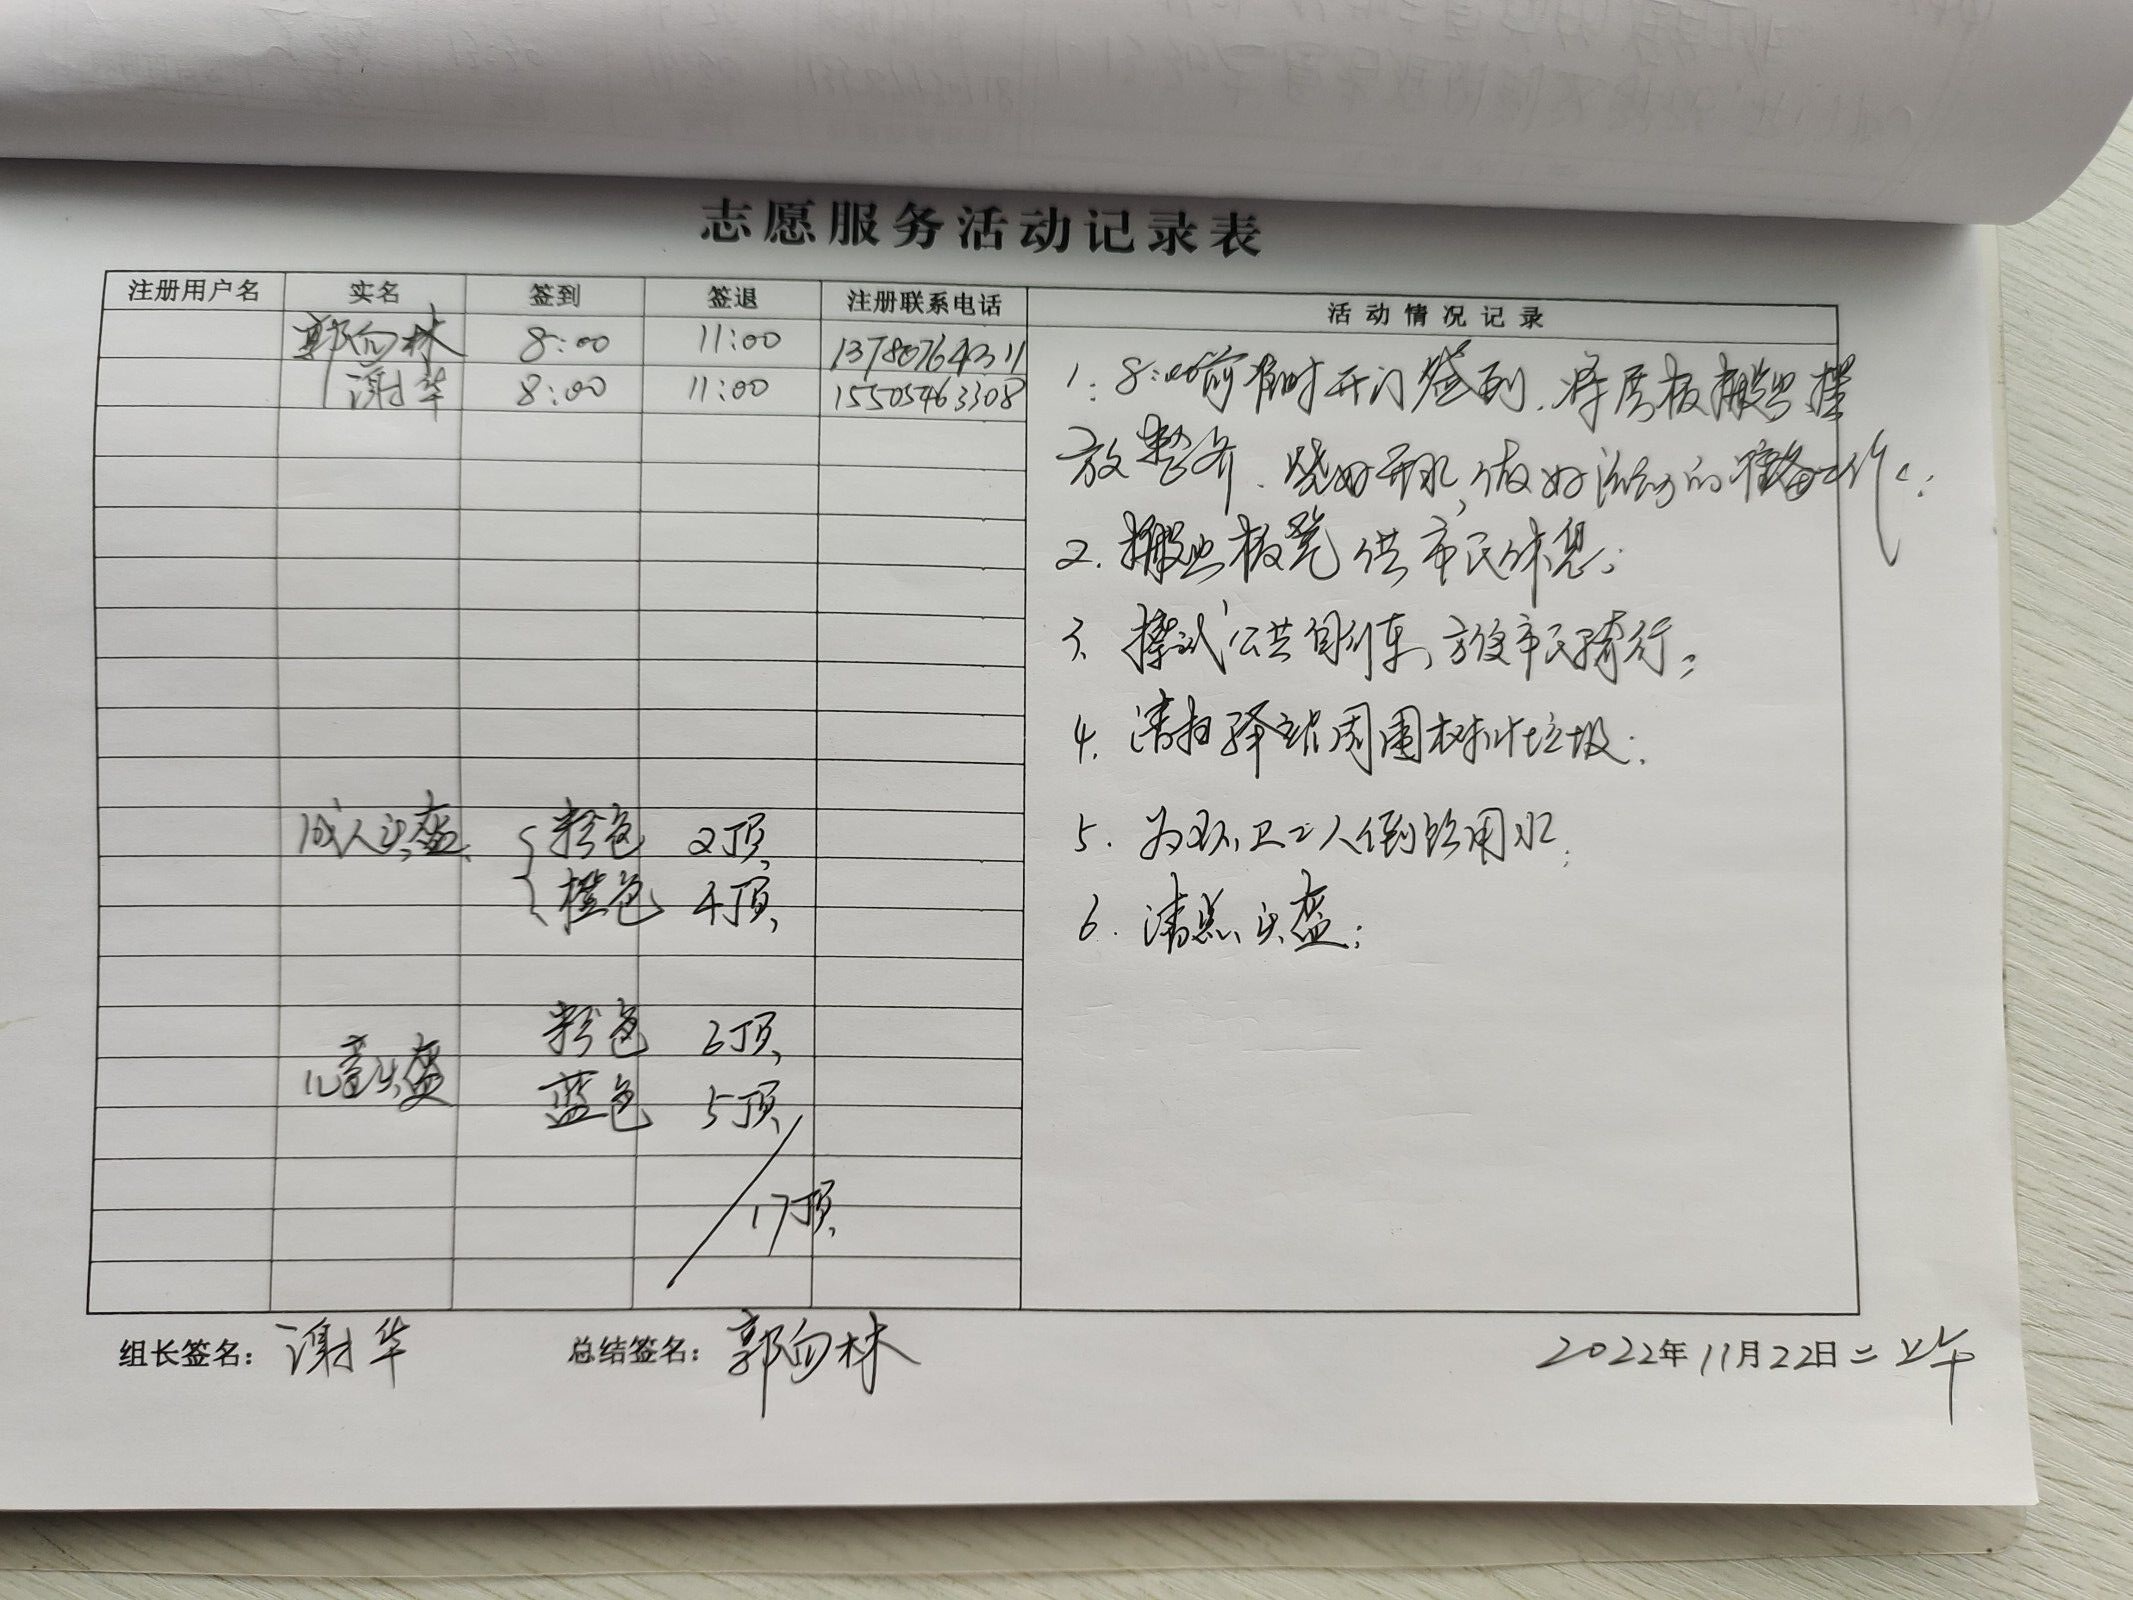 志愿服务活动记录表
注册用户名 实名 签到 签退 注册联系电话 活动情况记录
郭向林 8:00 11:00 13780764311
谢华 8:00 11:00 15505463308
1. 8:00前准时开门签到、将展板搬出摆
放整齐、烧好开水,做好活动的准备工作;
2. 搬出板凳供市民休息;
3. 擦试公共自行车,方便市民骑行;
4. 清扫驿站周围树叶垃圾;
5. 为环卫工人倒饮用水;
6. 清点头盔;
成人头盔 粉色 2顶
橙色 4顶
儿童头盔 粉色 6顶
蓝色 5顶
17顶
组长签名: 谢华 总结签名: 郭向林 2022年11月22日 二 上午